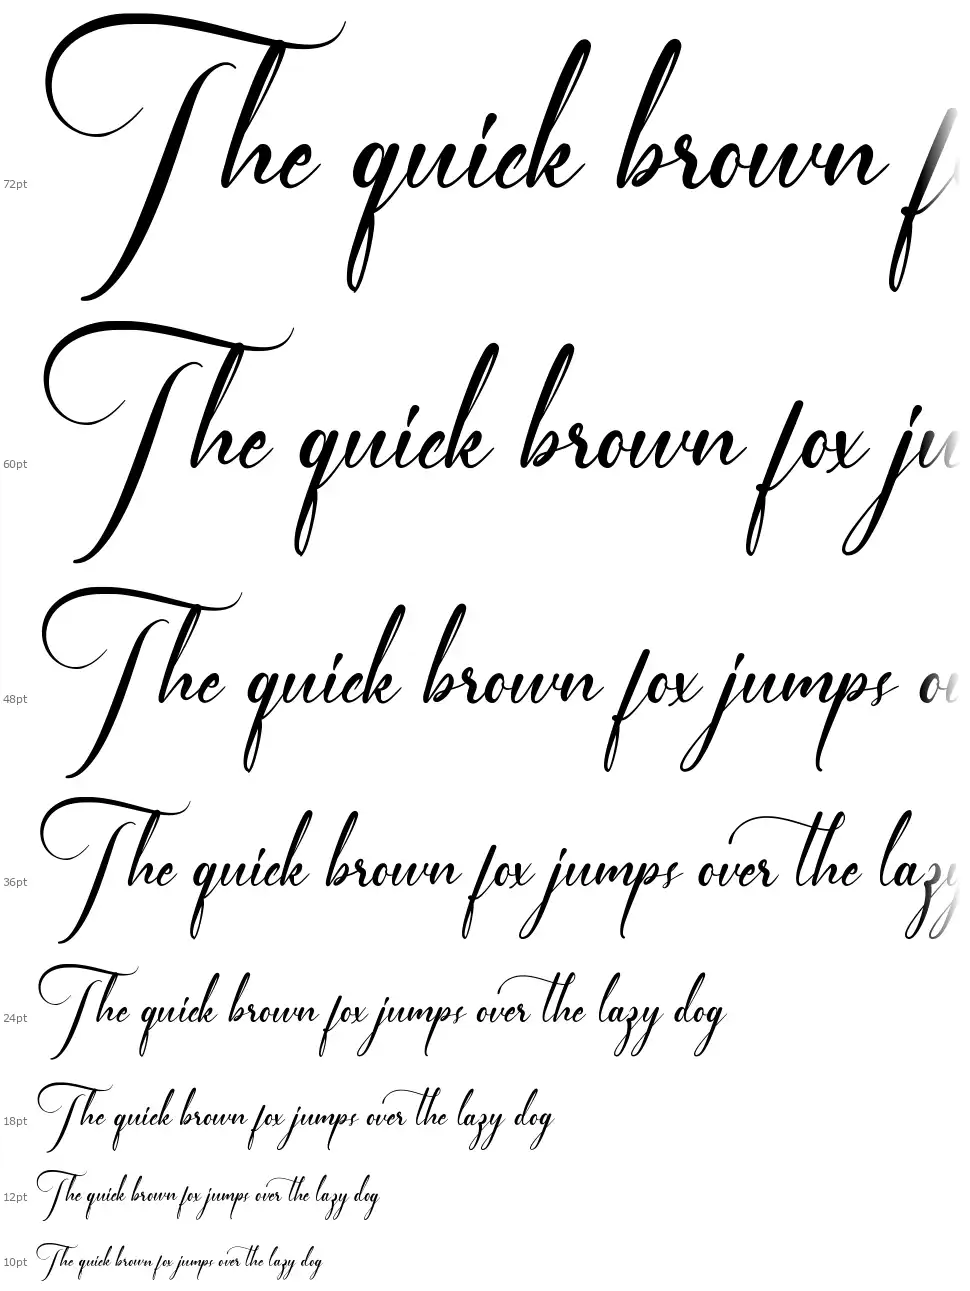 72pt The quick brown f
60pt The quick brown fox ju
48pt The quick brown fox jumps ov
36pt The quick brown fox jumps over the lazy
24pt The quick brown fox jumps over the lazy dog
18pt The quick brown fox jumps over the lazy dog
12pt The quick brown fox jumps over the lazy dog
10pt The quick brown fox jumps over the lazy dog